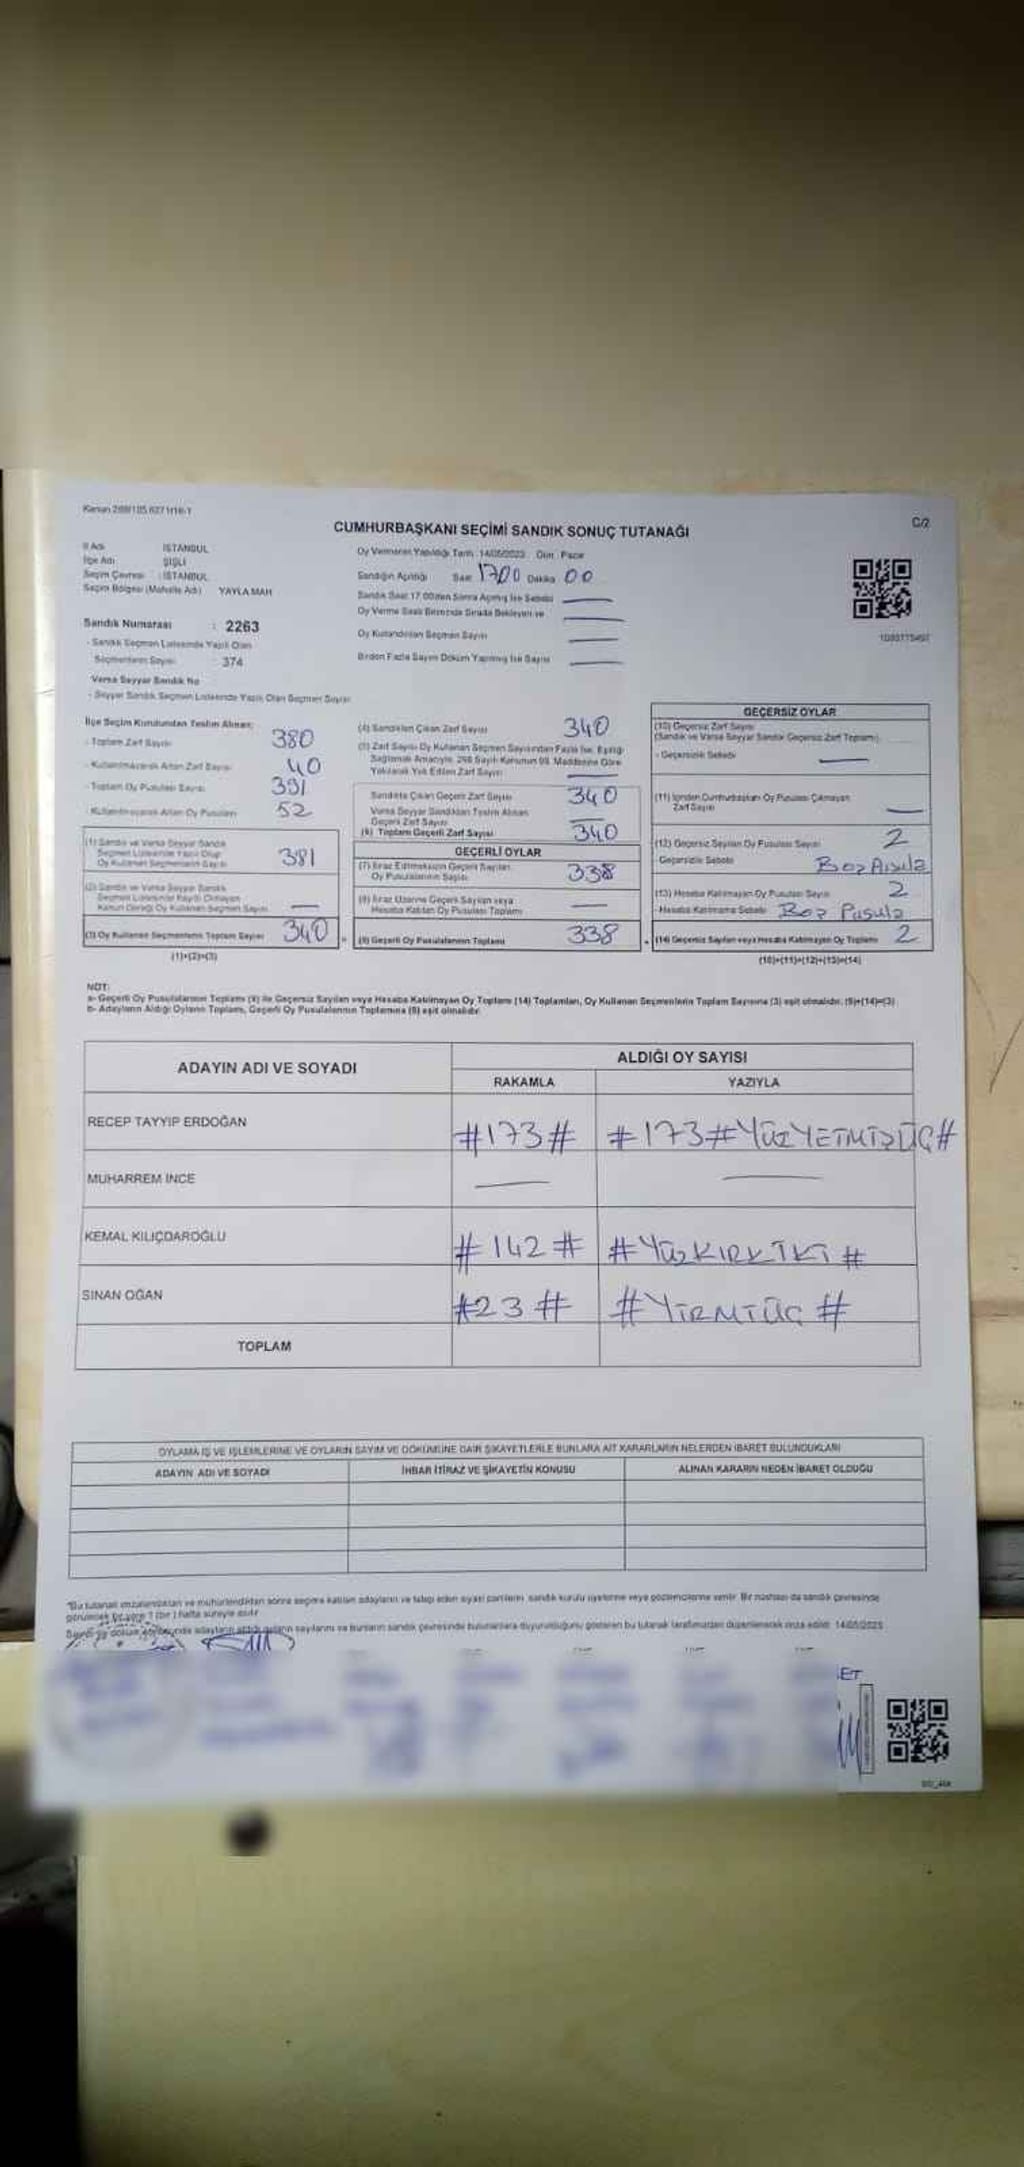 Kanun 298/105.6271/16-1
C/2
CUMHURBAŞKANI SEÇİMİ SANDIK SONUÇ TUTANAĞI
İl Adı İSTANBUL
İlçe Adı ŞİŞLİ
Seçim Çevresi : İSTANBUL
Seçim Bölgesi (Mahalle Adı) YAYLA MAH
Sandık Numarası : 2263
- Sandık Seçmen Listesinde Yazılı Olan
Seçmenlerin Sayısı : 374
Varsa Seyyar Sandık No
- Seyyar Sandık Seçmen Listesinde Yazılı Olan Seçmen Sayısı
Oy Vermenin Yapıldığı Tarih : 14/05/2023 Gün : Pazar
Sandığın Açıldığı Saat 1700 Dakika 00
Sandık Saat 17.00'den Sonra Açılmış İse Sebebi
Oy Verme Saati Bitiminde Sırada Bekleyen ve
Oy Kullandırılan Seçmen Sayısı
Birden Fazla Sayım Döküm Yapılmış İse Sayısı
İlçe Seçim Kurulundan Teslim Alınan:
- Toplam Zarf Sayısı 380
- Kullanılmayarak Artan Zarf Sayısı 40
- Toplam Oy Pusulası Sayısı 391
- Kullanılmayarak Artan Oy Pusulası 52
(1) Sandık ve Varsa Seyyar Sandık
Seçmen Listesinde Yazılı Olup
Oy Kullanan Seçmenlerin Sayısı 381
(2) Sandık ve Varsa Seyyar Sandık
Seçmen Listesinde Kayıtlı Olmayan
Kanun Gereği Oy Kullanan Seçmen Sayısı
(3) Oy Kullanan Seçmenlerin Toplam Sayısı 340
(1)+(2)=(3)
(4) Sandıktan Çıkan Zarf Sayısı 340
(5) Zarf Sayısı Oy Kullanan Seçmen Sayısından Fazla İse, Eşitliği
Sağlamak Amacıyla, 298 Sayılı Kanunun 98. Maddesine Göre
Yakılarak Yok Edilen Zarf Sayısı
Sandıkta Çıkan Geçerli Zarf Sayısı 340
Varsa Seyyar Sandıktan Teslim Alınan
Geçerli Zarf Sayısı
(6) Toplam Geçerli Zarf Sayısı 340
GEÇERLİ OYLAR
(7) İtiraz Edilmeksizin Geçerli Sayılan
Oy Pusulalarının Sayısı 338
(8) İtiraz Üzerine Geçerli Sayılan veya
Hesaba Katılan Oy Pusulası Toplamı
(9) Geçerli Oy Pusulalarının Toplamı 338
GEÇERSİZ OYLAR
(10) Geçersiz Zarf Sayısı
(Sandık ve Varsa Seyyar Sandık Geçersiz Zarf Toplamı)
- Geçersizlik Sebebi
(11) İçinden Cumhurbaşkanı Oy Pusulası Çıkmayan
Zarf Sayısı
(12) Geçersiz Sayılan Oy Pusulası Sayısı 2
Geçersizlik Sebebi
(13) Hesaba Katılmayan Oy Pusulası Sayısı 2
- Hesaba Katılmama Sebebi Boz Pusula
(14) Geçersiz Sayılan veya Hesaba Katılmayan Oy Toplamı 2
(10)+(11)+(12)+(13)=(14)
NOT:
a- Geçerli Oy Pusulalarının Toplamı (9) ile Geçersiz Sayılan veya Hesaba Katılmayan Oy Toplamı (14) Toplamları, Oy Kullanan Seçmenlerin Toplam Sayısına (3) eşit olmalıdır. (9)+(14)=(3)
b- Adayların Aldığı Oyların Toplamı, Geçerli Oy Pusulalarının Toplamına (9) eşit olmalıdır.
ADAYIN ADI VE SOYADI
ALDIĞI OY SAYISI
RAKAMLA YAZIYLA
RECEP TAYYİP ERDOĞAN #173# #173#YÜZYETMİŞÜÇ#
MUHARREM İNCE
KEMAL KILIÇDAROĞLU #142# #YÜZKIRKİKİ#
SİNAN OĞAN #23# #YİRMİÜÇ#
TOPLAM
OYLAMA İŞ VE İŞLEMLERİNE VE OYLARIN SAYIM VE DÖKÜMÜNE DAİR ŞİKAYETLERLE BUNLARA AİT KARARLARIN NELERDEN İBARET BULUNDUKLARI
ADAYIN ADI VE SOYADI İHBAR İTİRAZ VE ŞİKAYETİN KONUSU ALINAN KARARIN NEDEN İBARET OLDUĞU
"Bu tutanak imzalandıktan ve mühürlendikten sonra seçime katılan adayların ve talep eden siyasi partilerin, sandık kurulu üyelerine veya gözlemcilerine verilir. Bir nüshası da sandık çevresinde
görülecek bir yere 1 (bir) hafta süreyle asılır.
oyların sayılarını ve bunların sandık çevresinde bulunanlara duyurulduğunu gösteren bu tutanak tarafımızdan düzenlenerek imza edildi. 14/05/2023